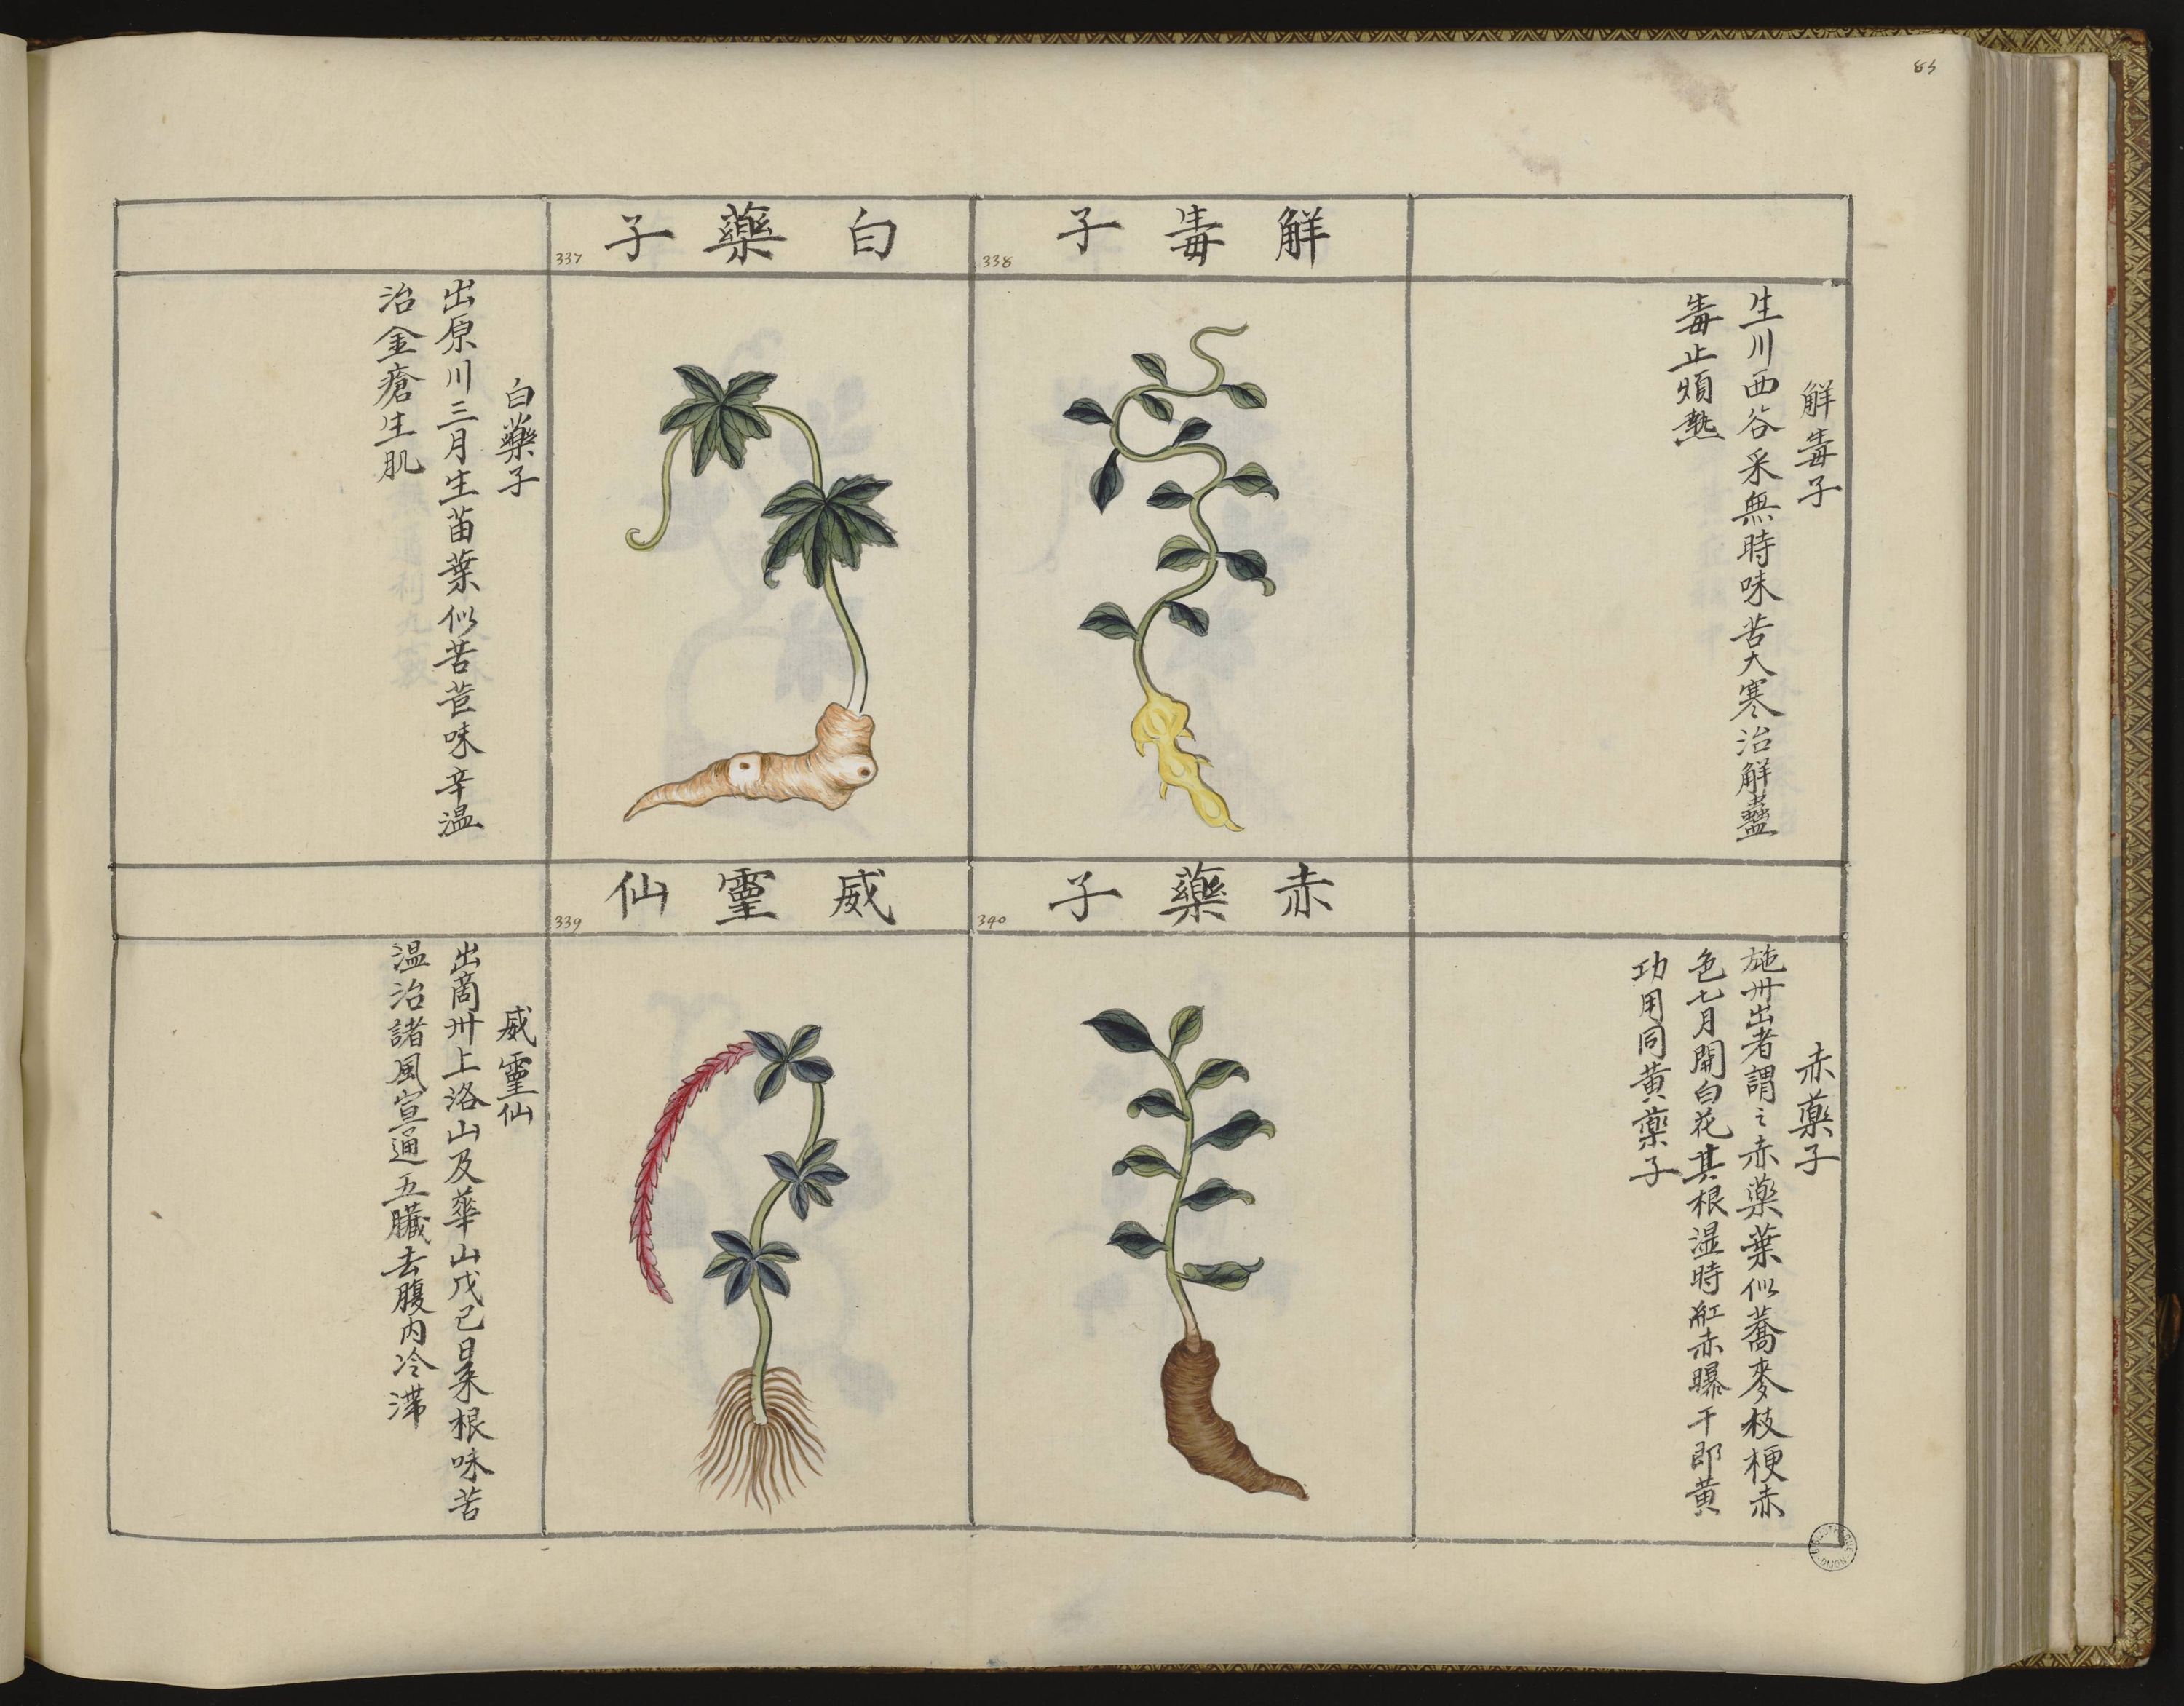 85
解毒子
338
解毒子
生川西谷采無時味苦大寒治解蠱
毒止煩熱
白藥子
337
白藥子
出原川三月生苗葉似苦苣味辛温
治金瘡生肌
赤藥子
340
赤藥子
施州出者謂之赤藥葉似蕎麥枝梗赤
色七月開白花其根湿時紅赤曝干即黄
功用同黄藥子
威靈仙
339
威靈仙
出商州上洛山及華山戊己日采根味苦
温治諸風宣通五臟去腹内冷滞